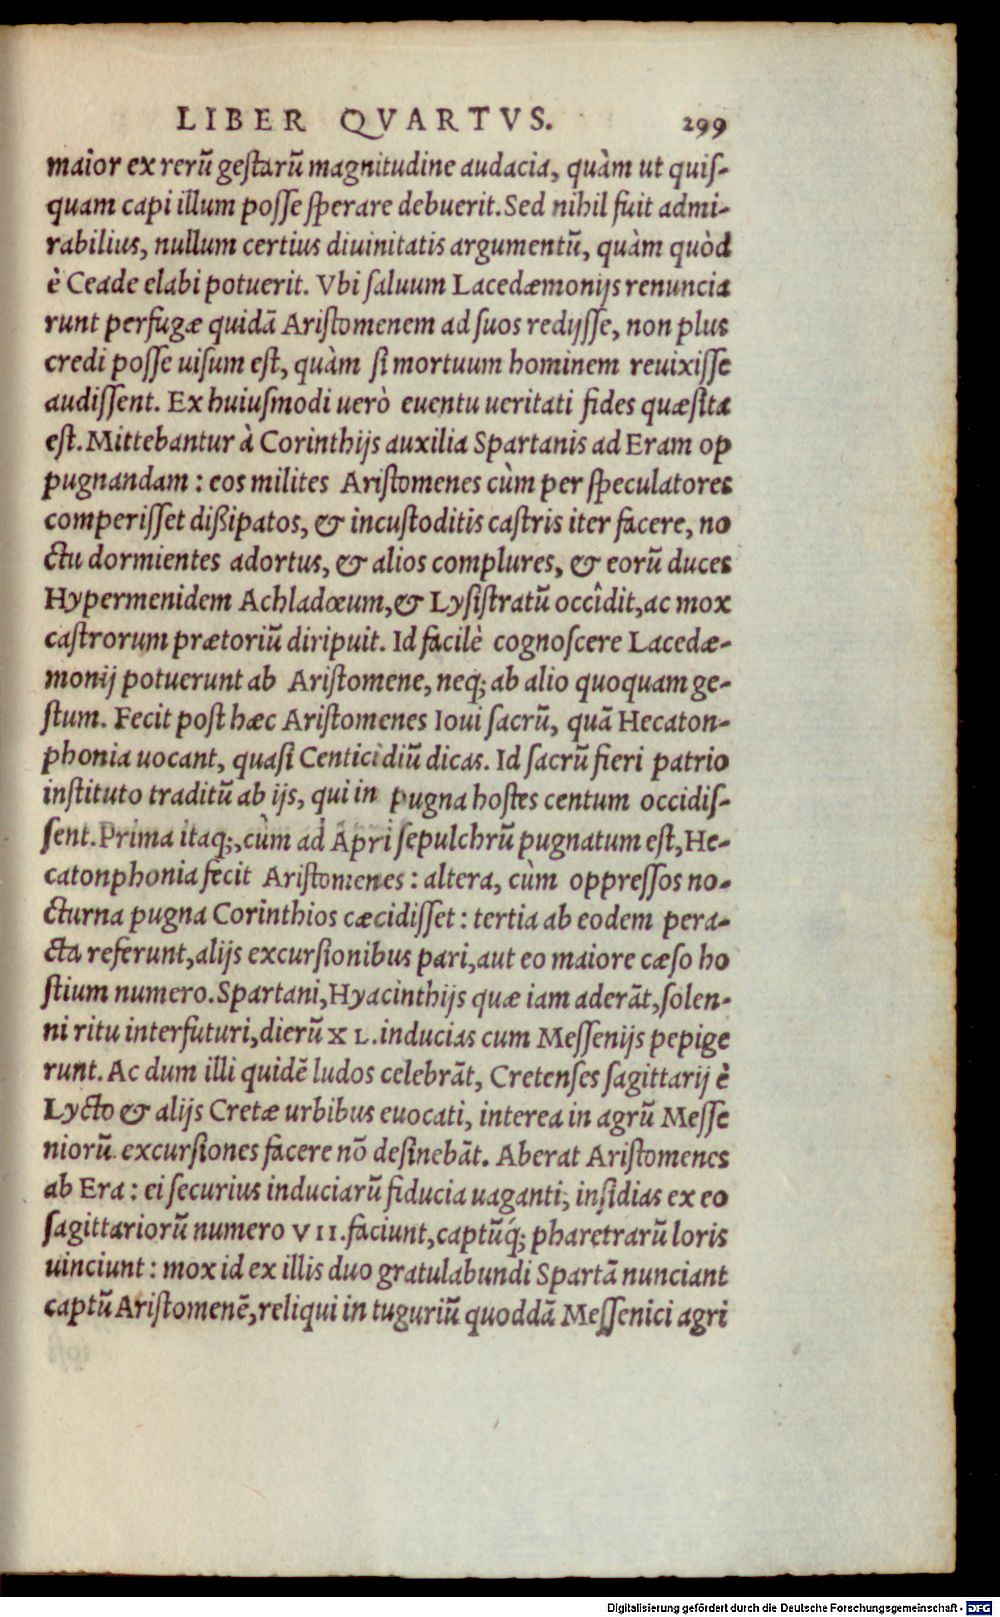 LIBER QVARTVS. 299
maior ex rerū gestarū magnitudine audacia, quàm ut quis-
quam capi illum posse sperare debuerit. Sed nihil fuit admi-
rabilius, nullum certius diuinitatis argumentū, quàm quòd
è Ceade elabi potuerit. Vbi saluum Lacedæmonijs renuncia
runt perfugæ quidā Aristomenem ad suos redijsse, non plus
credi posse uisum est, quàm si mortuum hominem reuixisse
audissent. Ex huiusmodi uerò euentu ueritati fides quæsita
est. Mittebantur à Corinthijs auxilia Spartanis ad Eram op
pugnandam : eos milites Aristomenes cùm per speculatores
comperisset dißipatos, & incustoditis castris iter facere, no
ctu dormientes adortus, & alios complures, & eorū duces
Hypermenidem Achladœum, & Lysistratū occîdit, ac mox
castrorum prætoriū diripuit. Id facilè cognoscere Lacedæ-
monij potuerunt ab Aristomene, neq; ab alio quoquam ge-
stum. Fecit post hæc Aristomenes Ioui sacrū, quā Hecaton-
phonia uocant, quasi Centicidiū dicas. Id sacrū fieri patrio
instituto traditū ab ijs, qui in pugna hostes centum occidis-
sent. Prima itaq;, cùm ad Apri sepulchrū pugnatum est, He-
catonphonia fecit Aristomenes : altera, cùm oppressos no-
cturna pugna Corinthios cæcidisset : tertia ab eodem pera-
cta referunt, alijs excursionibus pari, aut eo maiore cæso ho
stium numero. Spartani, Hyacinthijs quæ iam aderāt, solen-
ni ritu interfuturi, dierū XL. inducias cum Messenijs pepige
runt. Ac dum illi quidē ludos celebrāt, Cretenses sagittarij è
Lycto & alijs Cretæ urbibus euocati, interea in agrū Messe
niorū excursiones facere nō desinebāt. Aberat Aristomenes
ab Era : ei securius induciarū fiducia uaganti, insidias ex eo
sagittariorū numero VII. faciunt, captūq́; pharetrarū loris
uinciunt : mox id ex illis duo gratulabundi Spartā nunciant
captū Aristomenē, reliqui in tuguriū quoddā Messenici agri
Digitalisierung gefördert durch die Deutsche Forschungsgemeinschaft - DFG